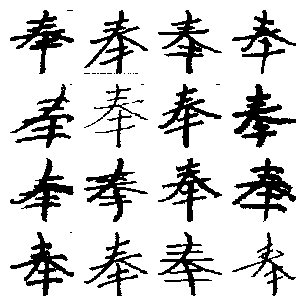 奉奉奉奉
奉奉奉奉
奉奉奉奉
奉奉奉奉